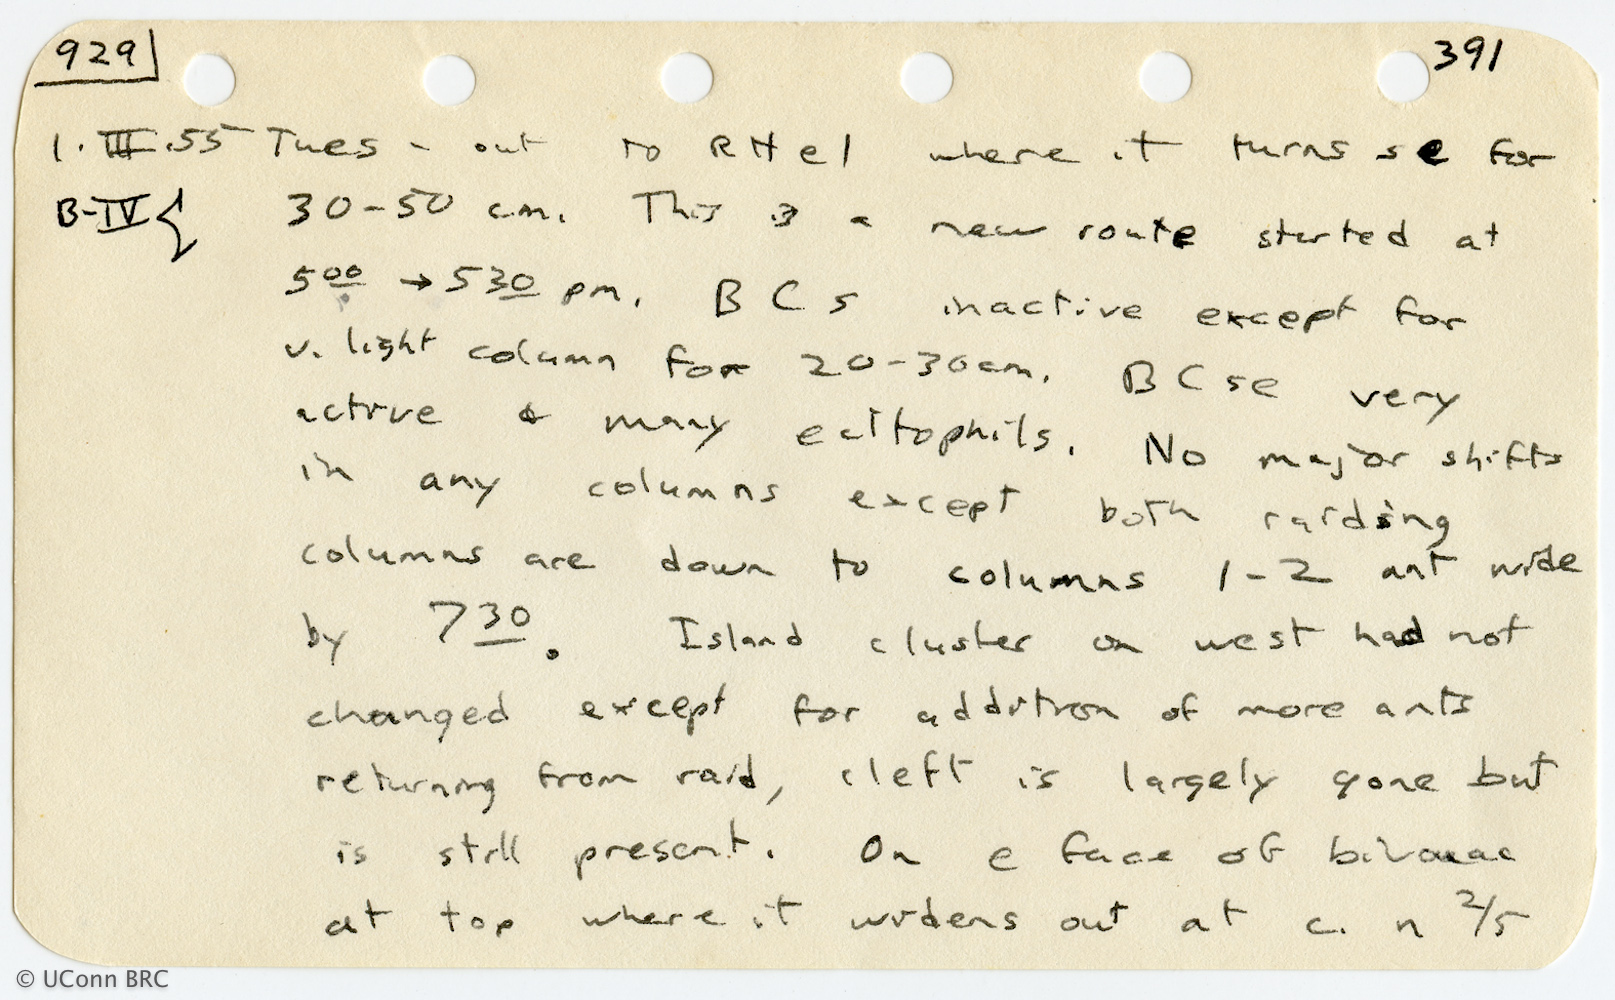 929 391
1.III.55 Tues - out to RHel where it turns se for
B-IV { 30-50 cm. This is a new route started at
500 → 530 pm. BCs inactive except for
v. light column for 20-30cm. BCse very
active & many ecitophils. No major shifts
in any columns except both raiding
columns are down to columns 1-2 ant wide
by 730. Island cluster on west had not
changed except for addition of more ants
returning from raid, cleft is largely gone but
is still present. On e face of bivouac
at top where it widens out at c. n 2/5
© UConn BRC